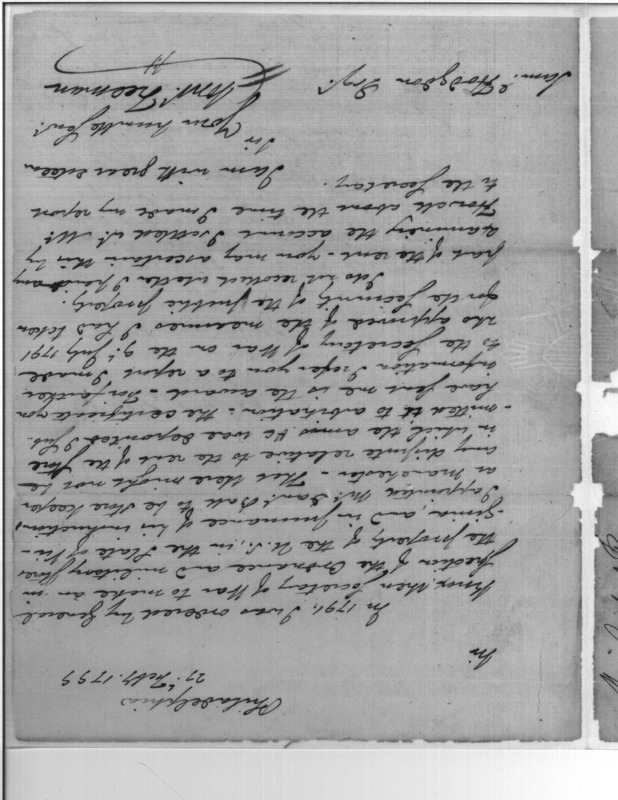 Philadelphia
27th Feby. 1799
Sir
In 1791, I was ordered by General
Knox then Secretary of War to make an in-
spection of the Ordnance and military Stores
the property of the U. S., in the State of Vir-
-ginia, and in pursuance of his instructions
I appointed Mr. Saml. to be Store Keeper
at Manchester - That there might not be
any dispute relative to the rent of the Store
in which the arms &c were deposited I sub-
-mitted it to arbitration - The certificate you
have sent me is the award - For further
information I refer you to a report I made
to the Secretary of War on the 9th. July 1791
who approved of the measures I had taken
for the security of the public property.
I do not recollect whether I paid any
part of the rent - you may ascertain this by
examining the account I settled wt. Mr.
Howell about the time I made my report
to the Secretary.
I am with great esteem
Sir
Your humble Servt.
Const. Freeman
Saml. Hodgdon Esqr.